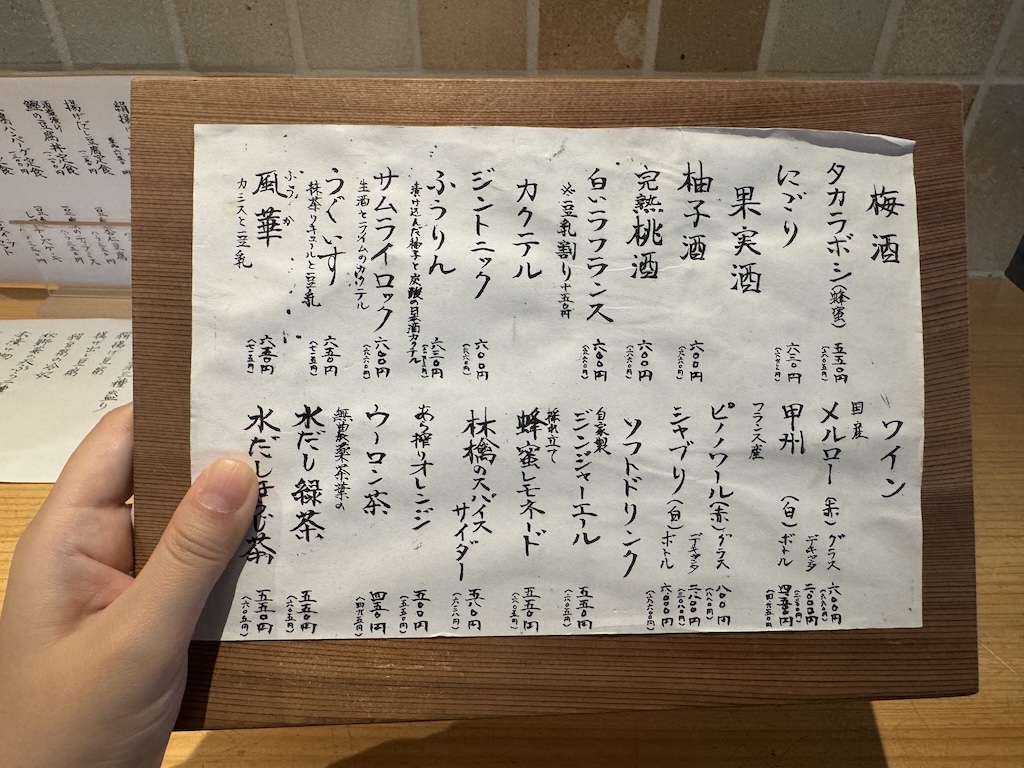 梅酒
タカラボシ(蜂蜜) 五五〇円
(六〇五円)
にごり 六三〇円
(六九三円)
果実酒
柚子酒 六〇〇円
(六六〇円)
完熟桃酒 六〇〇円
(六六〇円)
白いラフランス 六〇〇円
(六六〇円)
※豆乳割り+五〇円
カクテル
ジントニック 六〇〇円
(六六〇円)
ふうりん 六三〇円
(六九三円)
漬け込んだ柚子と炭酸の日本酒カクテル
サムライロック 六〇〇円
(六六〇円)
生酒とライムのカクテル
うぐいす 六五〇円
(七一五円)
抹茶リキュールと豆乳
ふうか
風華 六五〇円
(七一五円)
カシスと豆乳
ワイン
国産
メルロー(赤) グラス 六〇〇円
(六六〇円)
デキャンタ 二〇〇〇円
(二二〇〇円)
甲州(白)ボトル 四五〇〇円
(四九五〇円)
フランス産
ピノノワール(赤) グラス 八〇〇円
(八八〇円)
デキャンタ 二八〇〇円
(三〇八〇円)
シャブリ(白)ボトル 六〇〇〇円
(六六〇〇円)
ソフトドリンク
自家製
ジンジャーエール 五五〇円
(六〇五円)
採れ立て
蜂蜜レモネード 五五〇円
(六〇五円)
林檎のスパイスサイダー 五八〇円
(六三八円)
あら搾りオレンジ 五〇〇円
(五五〇円)
ウーロン茶 四五〇円
(四九五円)
無農薬茶葉の
水だし緑茶 五五〇円
(六〇五円)
水だしほうじ茶 五五〇円
(六〇五円)